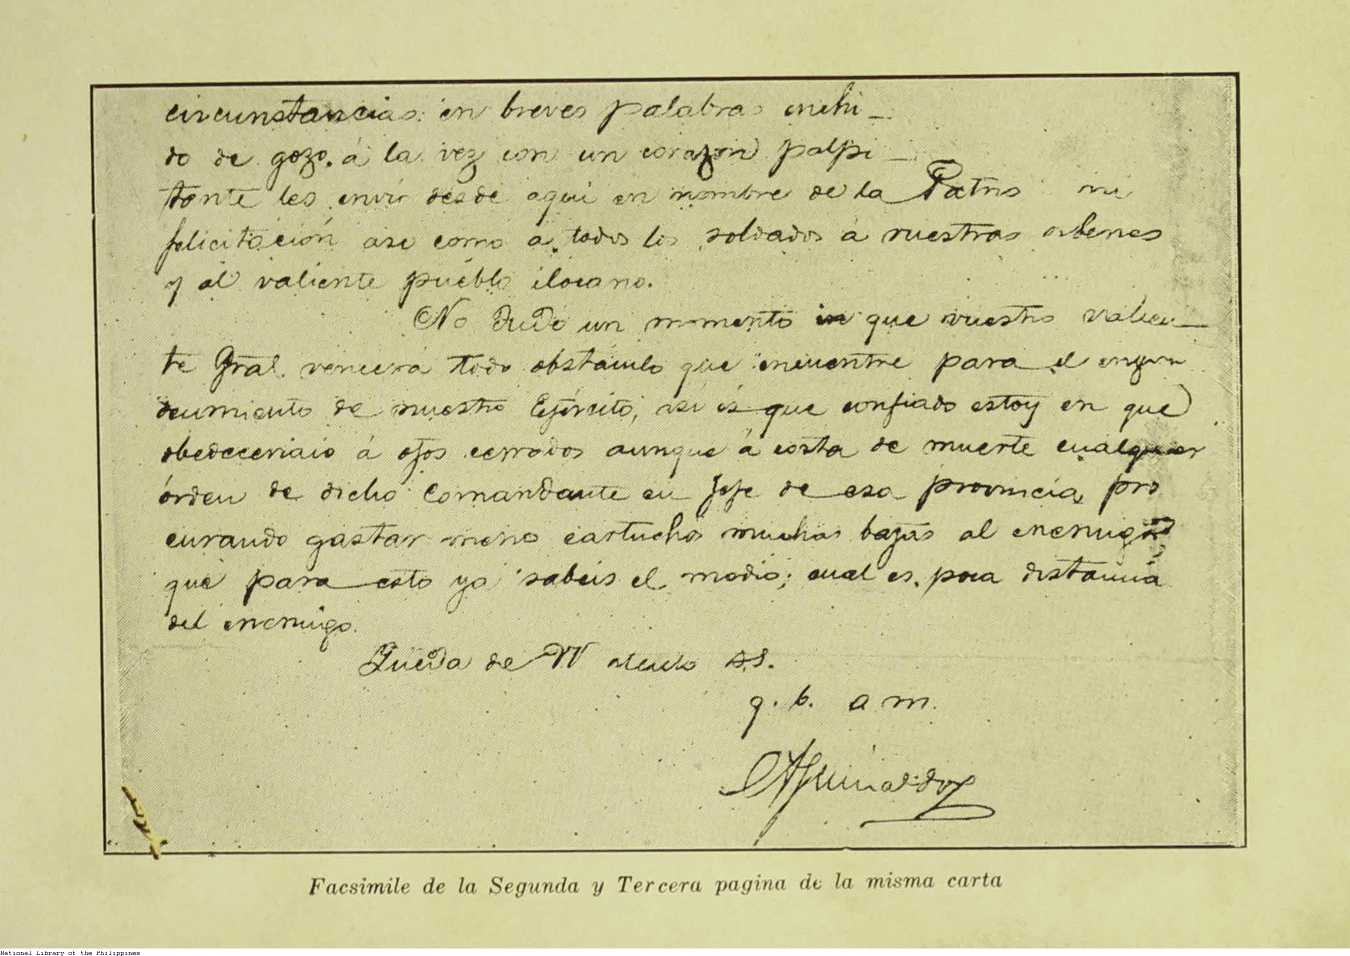 circunstancias en breves palabras enchi-
do de gozo. á la vez con un corazon palpi-
tante les envio desde aqui en nombre de la Patria mi
felicitacion asi como a todos los soldados á vuestras ordenes
y al valiente pueblo ilocano.
No dudo un momento en que vuestro valien-
te Gral. vencerá todo obstáculo que encuentre para el engran
decimiento de nuestro Ejército, asi es que confiado estoy en que
obedeceriais á ojos cerrados aunque á costa de muerte cualquier
órden de dicho Comandante en Jefe de esa provincia, pro
curando gastar menos cartuchos muchas bajas al enemigo
que para esto ya sabeis el modio; cual es, poca distancia
del enemigo.
Queda de W atento s.s.
q. b. a m.
EAguinaldo
Facsimile de la Segunda y Tercera pagina de la misma carta
National Library of the Philippines